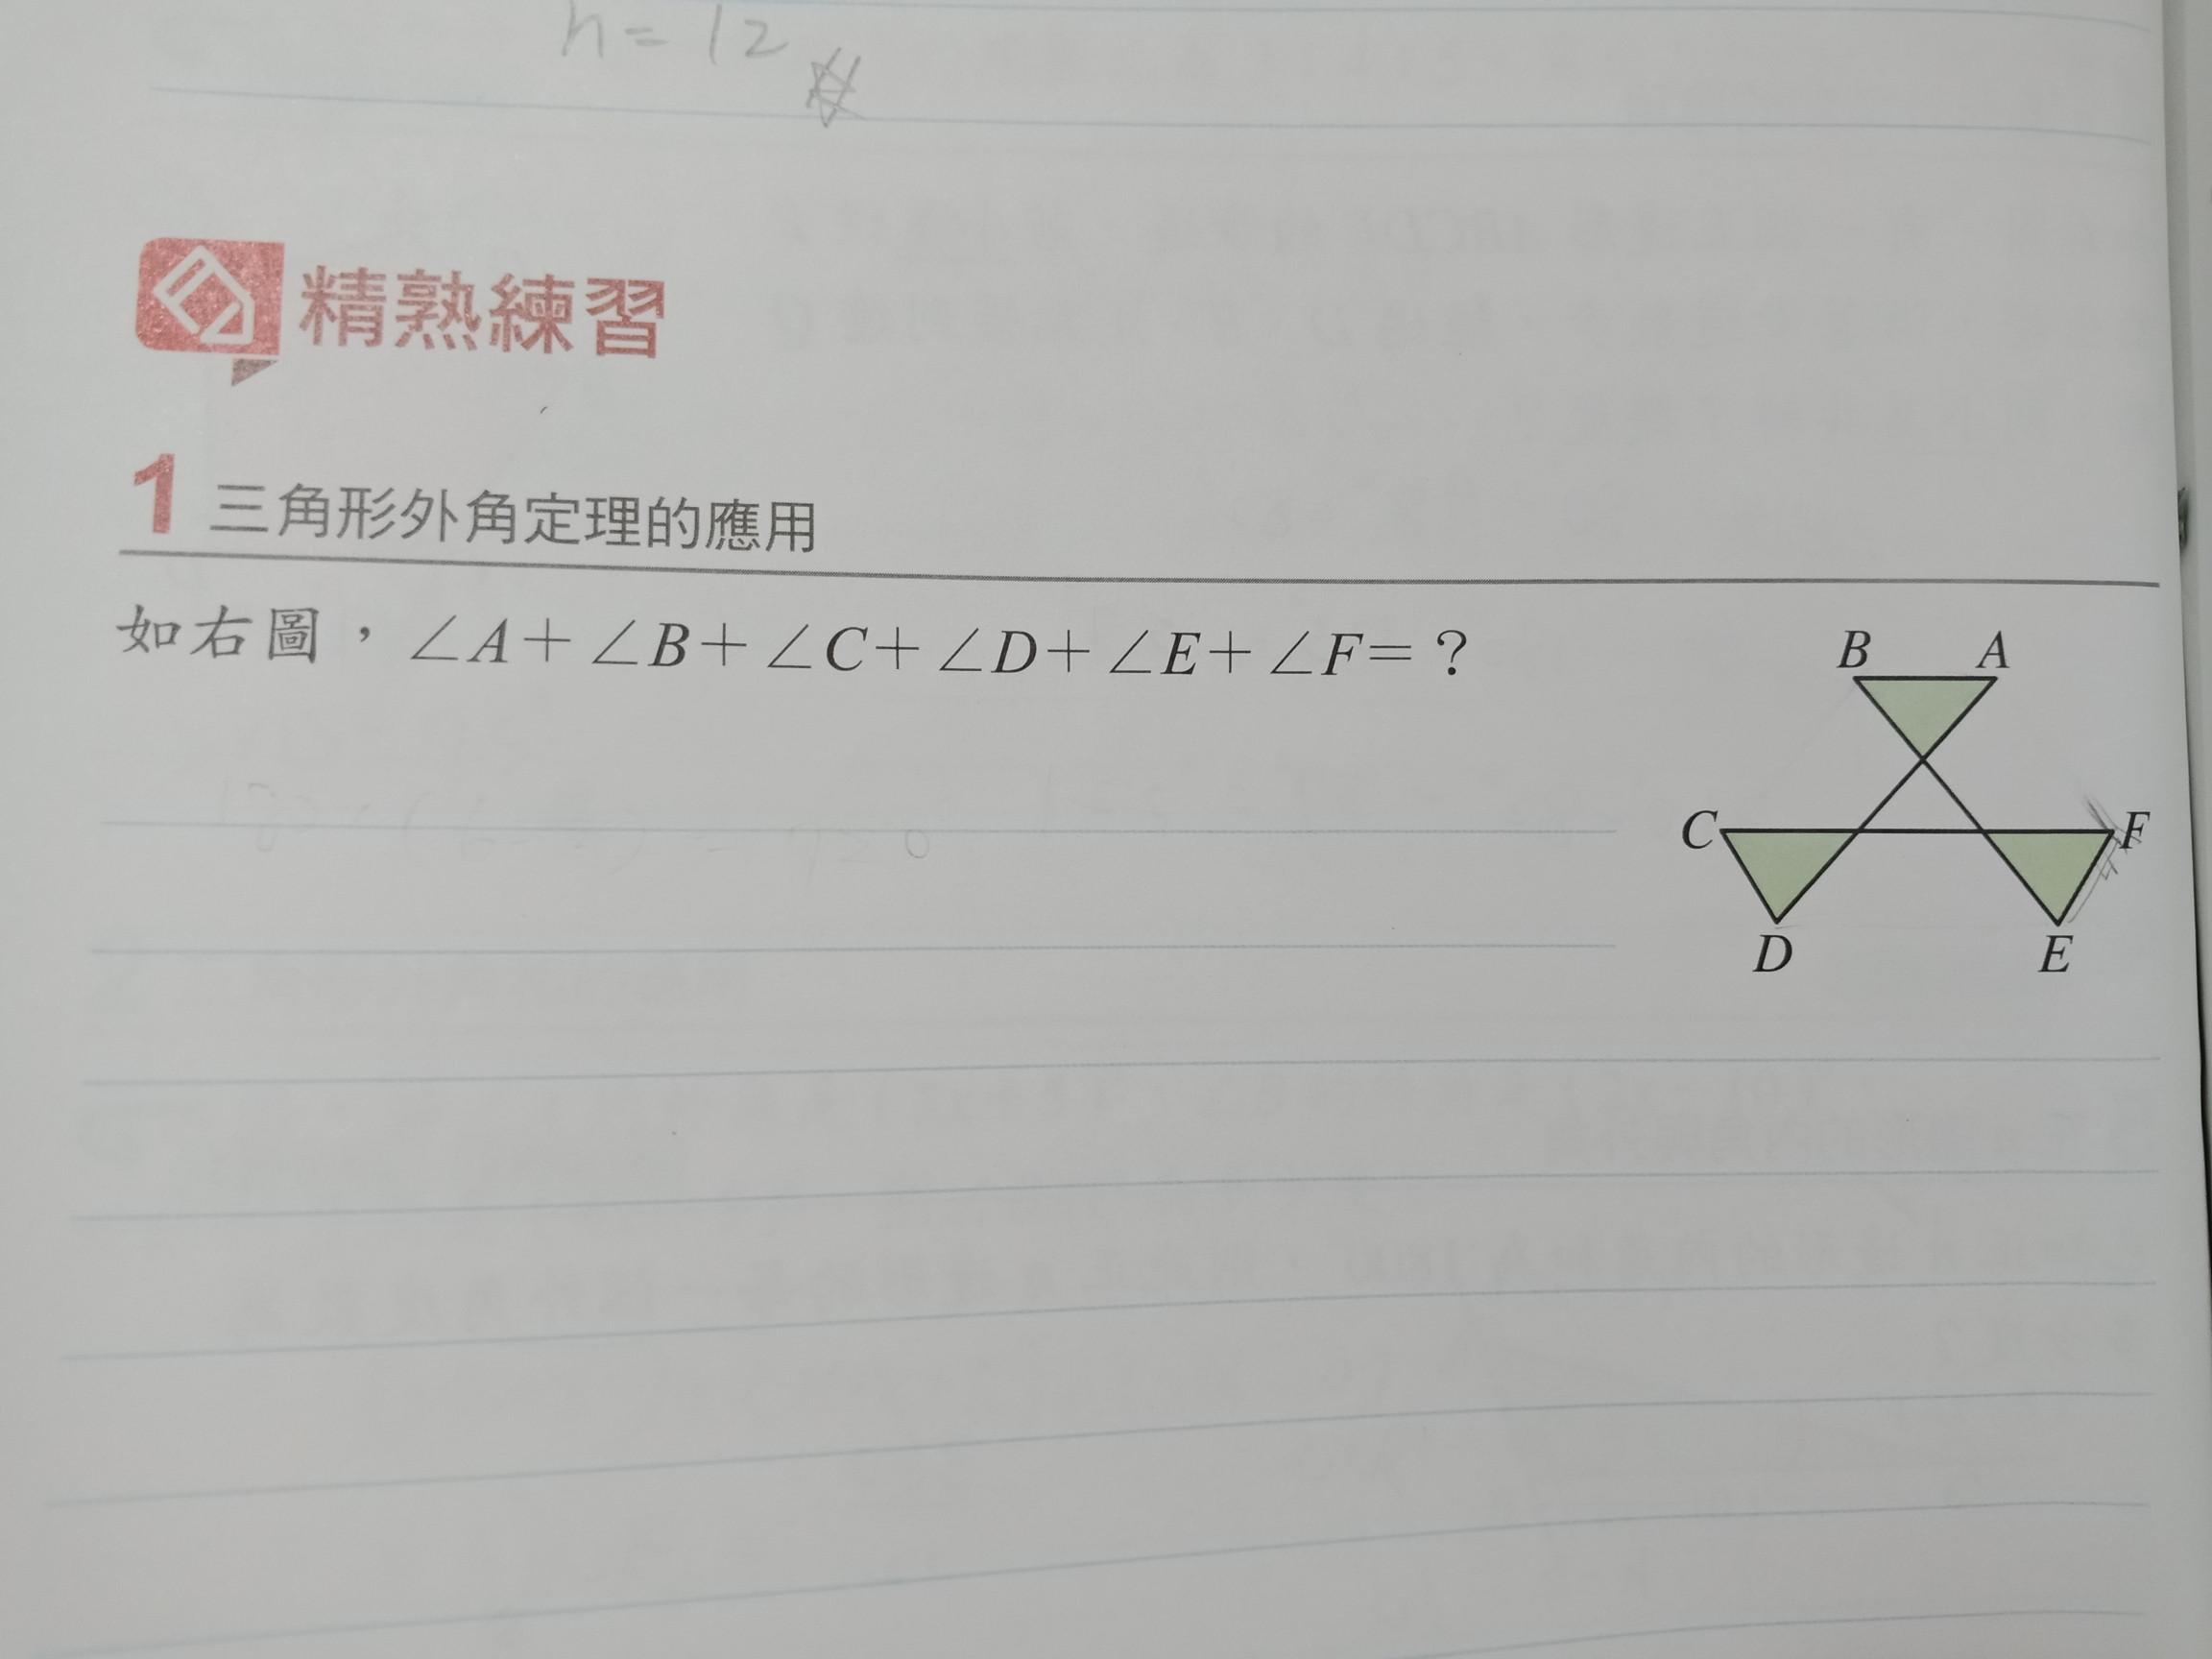 n=12
精熟練習
1 三角形外角定理的應用
如右圖，∠A+∠B+∠C+∠D+∠E+∠F=？
B A
C F
D E